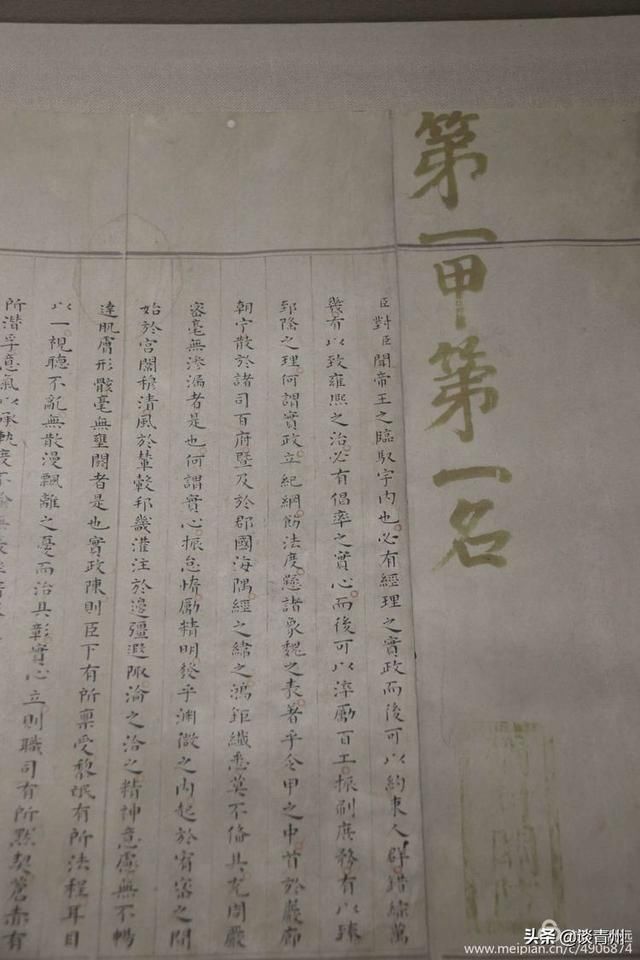 第一甲第一名
臣對臣聞帝王之臨馭宇內也必有經理之實政而後可以約束人群錯綜萬
幾有以致雍熙之治必有倡率之實心而後可以淬勵百工振刷庶務有以臻
郅隆之理何謂實政立紀綱飭法度懸諸象魏之表著乎令甲之中首於巖廊
朝宁散於諸司百府暨及於郡國海隅經之緯之鴻鉅纖悉莫不備具充周嚴
密毫無滲漏者是也何謂實心振怠惰勵精明發乎淵微之內起於宥密之間
始於宮闈穆清風於輦轂邦畿灌注於邊疆遐陬淪之洽之精神意慮無不暢
達肌膚形骸毫無壅閼者是也實政陳則臣下有所稟受黎氓有所法程耳目
以一視聽不亂無散漫飄離之憂而治具彰實心立則職司有所默契蒼赤有
所潛孚意氣以承軌度不踰無
头条 @谈青州
www.meipian.cn/c/4906874